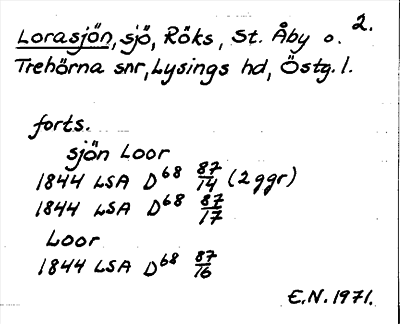 2.
Lorasjön, sjö, Röks, St. Åby o.
Trehörna snr, Lysings hd, Östg. l.
forts.
sjön Loor
1844 LSA D68 87/14 (2 ggr)
1844 LSA D68 87/17
Loor
1844 LSA D68 87/16
E.N. 1971.